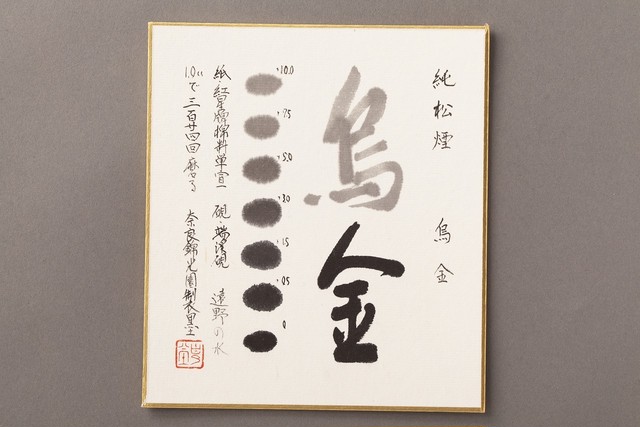 純松煙 烏金
烏金
10.0
7.5
5.0
3.0
1.5
0.5
0
紙・紅星牌棉料単宣 硯・端渓硯 遠野の水
1.0ccで三百廿四回磨る 奈良錦光園製墨